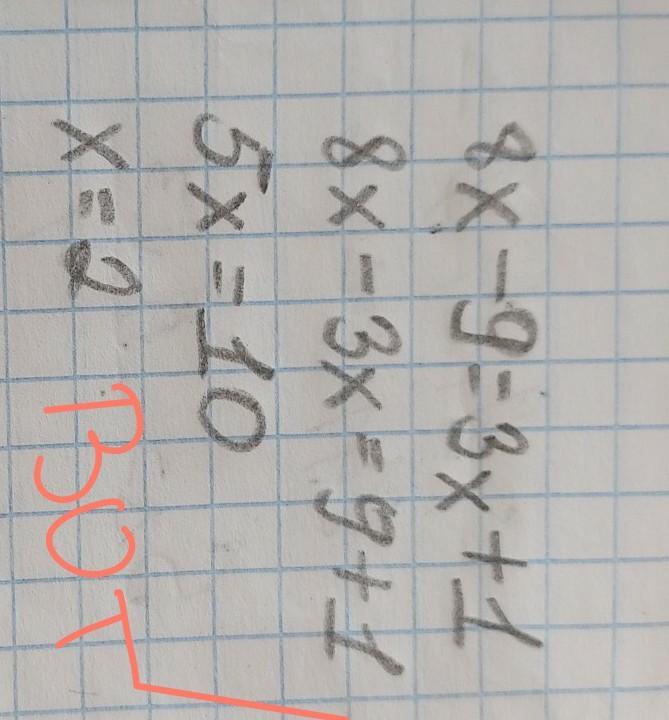 8x - 9 = 3x + 1
8x - 3x = 9 + 1
5x = 10
x = 2
ВОТ